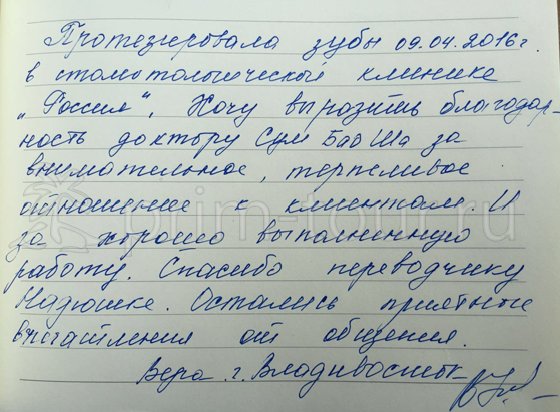 Протезировала зубы 09.04.2016г.
в стоматологической клинике
„Россия“. Хочу выразить благодар-
ность доктору Сум Бао Ша за
внимательное, терпеливое
отношение к клиентам. И
за хорошо выполненную
работу. Спасибо переводчику
Надюшке. Остались приятные
впечатления от общения.
Вера г. Владивосток